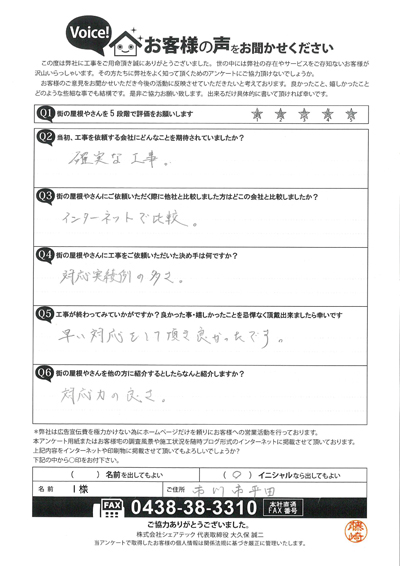 Voice!
お客様の声をお聞かせください
この度は弊社に工事をご用命頂き誠にありがとうございました。世の中には弊社の存在やサービスをご存知ないお客様が
沢山いらっしゃいます。その方たちに弊社をよく知って頂くためのアンケートにご協力頂けないでしょうか。
お客様のご意見をお聞かせいただき今後の活動に反映させていただきたいと考えております。良かったこと、嬉しかったこと
どのような些細な事でも結構です。是非ご協力お願い致します。出来るだけ具体的に書いて頂ければ幸いです。
Q1 街の屋根やさんを5段階で評価をお願いします
Q2 当初、工事を依頼する会社にどんなことを期待されていましたか?
確実な工事。
Q3 街の屋根やさんにご依頼いただく際に他社と比較しました方はどこの会社と比較しましたか?
インターネットで比較。
Q4 街の屋根やさんに工事をご依頼いただいた決め手は何ですか?
対応実績例の多さ。
Q5 工事が終わってみていかがですか?良かった事・嬉しかったことを忌憚なく頂戴出来ましたら幸いです
早い対応をして頂き良かったです。
Q6 街の屋根やさんを他の方に紹介するとしたらなんと紹介しますか?
対応力の良さ。
*弊社は広告宣伝費を極力かけない為にホームページだけを頼りにお客様への営業活動を行っております。
本アンケート用紙またはお客様宅の調査風景や施工状況を随時ブログ形式のインターネットに掲載させて頂いております。
上記内容をインターネットや印刷物に掲載させて頂いてもよろしいでしょうか?
下記の中から〇印をお付下さい。
( )名前を出してもよい (〇)イニシャルなら出してもよい
名前 I様 ご住所 市川市平田
FAX 0438-38-3310 本社直通FAX番号
ご協力ありがとうございました。
株式会社シェアテック 代表取締役 大久保 誠二
当アンケートで取得したお客様の個人情報は関係法規に基づき厳正に管理いたします。